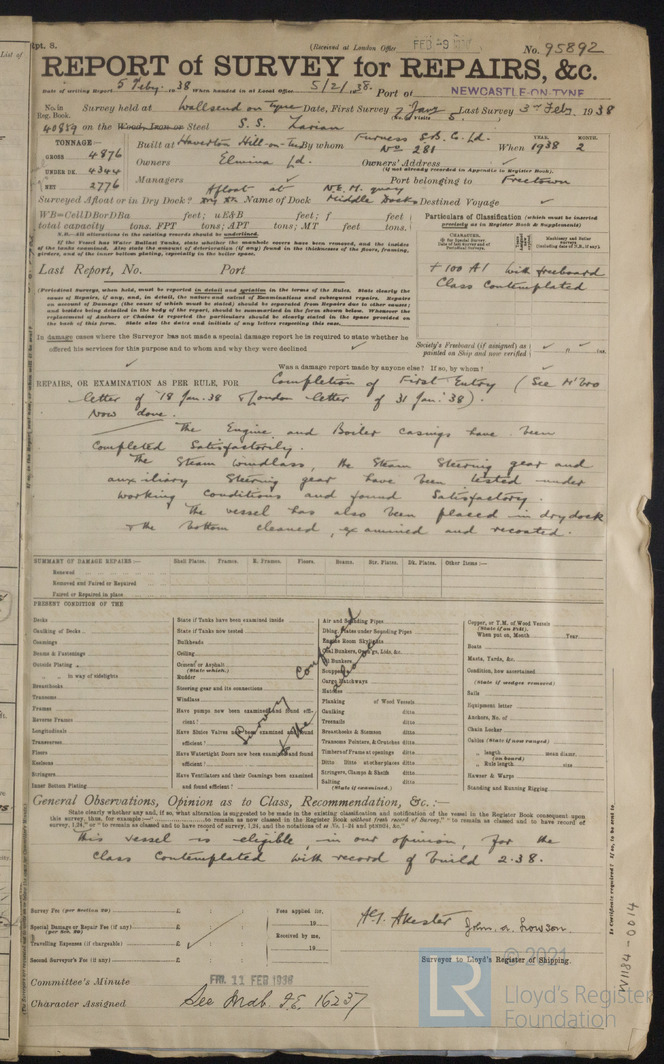 Rpt. 8.
(Received at London Office FEB -9 1938
No. 95892
REPORT of SURVEY for REPAIRS, &c.
Date of writing Report 5 Feby. 1938 When handed in at Local Office 5/2/1938. Port of NEWCASTLE-ON-TYNE
No. in Reg. Book. Survey held at Wallsend on Tyne Date, First Survey 7 Jany Last Survey 3rd Feb 1938
(No. of Visits 5
40889 on the Wood, Iron or Steel S.S. Zarian
TONNAGE:—
GROSS 4876
UNDER DK. 4344
NET 2776
Built at Haverton Hill-on-Tees By whom Furness S.B. Co. Ld. No 281 When YEAR. 1938 MONTH. 2
Owners Elmina Ld. Owners' Address
(if not already recorded in Appendix to Register Book.)
Managers Port belonging to Freetown
Surveyed Afloat or in Dry Dock? Afloat at N.E.M. quay Name of Dock Middle Docks Destined Voyage
WB=CellDBorDBa feet; uE&B feet; f feet
total capacity tons. FPT tons; APT tons; MT feet tons.
N.B.—All alterations in the existing records should be underlined.
Last Report, No. Port
Particulars of Classification (which must be inserted precisely as in Register Book & Supplements)
+ 100 A1 with freeboard
Class Contemplated
Society's Freeboard (if assigned) as painted on Ship and now verified
In damage cases where the Surveyor has not made a special damage report he is required to state whether he
offered his services for this purpose and to whom and why they were declined
Was a damage report made by anyone else? If so, by whom?
REPAIRS, OR EXAMINATION AS PER RULE, FOR Completion of First Entry (See M'bro
letter of 18 Jan. 38 & London letter of 31 Jan. 38).
Now done.
The Engine and Boiler casings have been
completed satisfactorily.
The Steam windlass, the Steam Steering gear and
auxiliary Steering gear have been tested under
working conditions and found satisfactory.
The vessel has also been placed in drydock
& the bottom cleaned, examined and recoated.
SUMMARY OF DAMAGE REPAIRS:— Shell Plates. Frames. R. Frames. Floors. Beams. Str. Plates. Dk. Plates. Other Items:—
Renewed
Removed and Faired or Repaired
Faired or Repaired in place
PRESENT CONDITION OF THE
Decks
Caulking of Decks
Coamings
Beams & Fastenings
Outside Plating
" " in way of sidelights
Breasthooks
Transoms
Frames
Reverse Frames
Longitudinals
Transverses
Floors
Keelsons
Stringers
Inner Bottom Plating
State if Tanks have been examined inside
State if Tanks now tested
Bulkheads
Ceiling
Cement or Asphalt
(State which.)
Rudder
Steering gear and its connections
Windlass
Have pumps now been examined and found efficient?
Have Sluice Valves now been examined and found efficient?
Have Watertight Doors now been examined and found efficient?
Have Ventilators and their Coamings been examined and found efficient?
Air and Sounding Pipes
Dblng. Plates under Sounding Pipes
Engine Room Skylights
Coal Bunkers, Openings, Lids, &c.
Oil Bunkers
Scuppers
Cargo Hatchways
Hatches
Planking of Wood Vessels
Caulking ditto
Treenails ditto
Breasthooks & Stemson ditto
Transoms Pointers, & Crutches ditto
Timbers of Frame at openings ditto
Ditto Ditto at other places ditto
Stringers, Clamps & Shelfs ditto
Salting ditto
(State if examined.)
Copper, or Y.M. of Wood Vessels
(State if on Felt).
When put on, Month Year
Boats
Masts, Yards, &c.
Condition, how ascertained
(State if wedges removed)
Sails
Equipment letter
Anchors, No. of
Chain Locker
Cables (State if now ranged)
" length mean diamr.
(on board)
" Rule length size
Hawser & Warps
Standing and Running Rigging
Survey confined
to the above
General Observations, Opinion as to Class, Recommendation, &c.:—
State clearly whether any and, if so, what alteration is suggested to be made in the existing classification and notification of the vessel in the Register Book consequent upon
This vessel is eligible, in our opinion, for the
Class Contemplated with record of build 2.38.
Survey Fee (per Section 29) £
Special Damage or Repair Fee (if any) £
(per Sec. 29)
Travelling Expenses (if chargeable) £
Second Surveyor's Fee (if any) £
Fees applied for,
19
Received by me,
19
Surveyor to Lloyd's Register of Shipping.
Committee's Minute FRI. 11 FEB 1938
Character Assigned See Mdb. F.E. 16237
W1184-0014
© 2021
LR
Lloyd's Register
Foundation